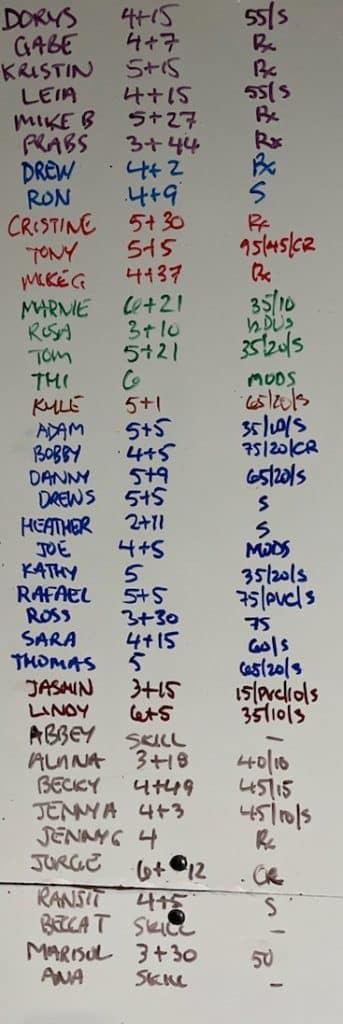 DORYS 4+15 55/S
GABE 4+7 Rx
KRISTIN 5+15 Rx
LEIA 4+15 55/S
MIKE B 5+27 Rx
PRABS 3+44 Rx
DREW 4+2 Rx
RON 4+9 S
CRISTINE 5+30 Rx
TONY 5+5 95/45/CR
MIKE G 4+37 Rx
MARNIE 6+21 35/10
ROSA 3+10
TOM 5+21 35/20/S
THI 6 MODS
KYLE 5+1 65/20/S
ADAM 5+5 35/10/S
BOBBY 4+5 75/20/CR
DANNY 5+9 65/20/S
DREWS 5+5 S
HEATHER 2+11 S
JOE 4+5 MODS
KATHY 5 35/20/S
RAFAEL 5+5 75/PVC/S
ROSS 3+30 75
SARA 4+15 60/S
THOMAS 5 65/20/S
JASMIN 3+15 15/PVC/10/S
LINDY 6+5 35/10/S
ABBEY SKILL –
ALAINA 3+18 40/10
BECKY 4+49 45/15
JENNY A 4+3 45/10/S
JENNY G 4 Rx
JORGE 6+12 CR
RANJIT 4+5 S
BECCA T SKILL –
MARISOL 3+30 50
ANA SKILL –